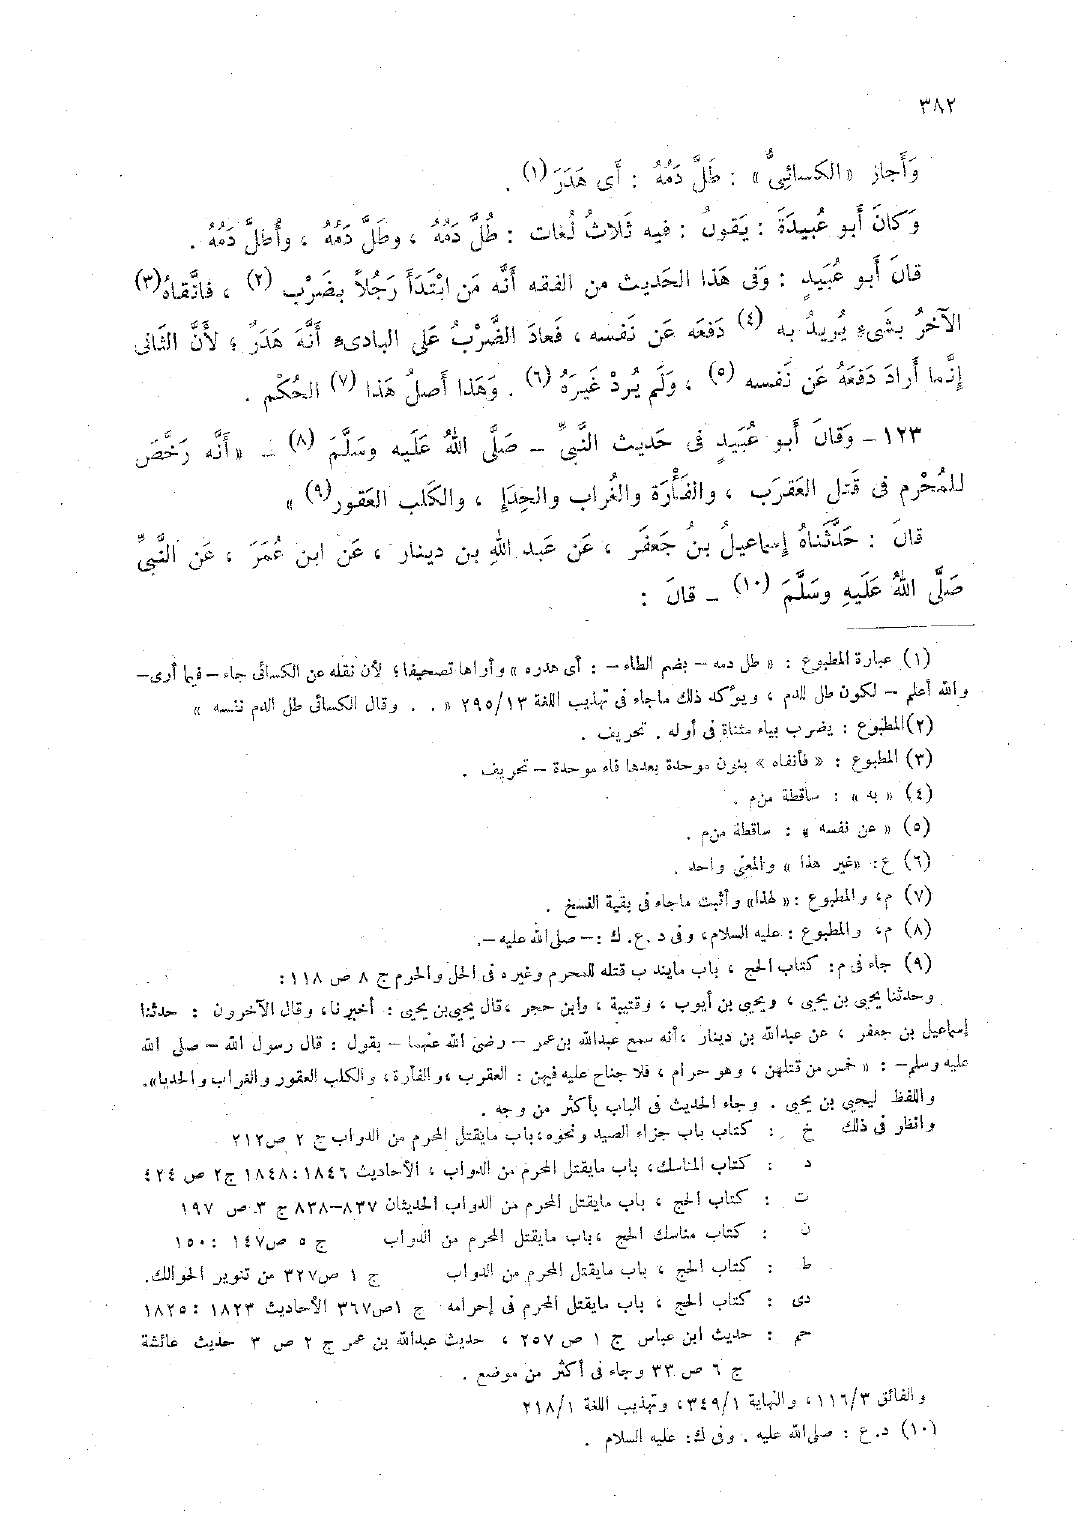 ٣٨٢
وَأَجازَ «الكسائىُّ» : طَلَّ دَمُهُ : أَى هَدَرَ (١) .
وَكانَ أَبو عُبيدَةَ : يَقولُ : فيه ثَلاثُ لُغات : طُلَّ دَمُهُ ، وطَلَّ دَمُهُ ، وأُطلَّ دَمُهُ .
قالَ أَبو عُبَيدٍ : وَفى هَذا الحَديث من الفقه أَنَّه مَن ابْتَدَأَ رَجُلاً بضَرْب (٢) ، فاتَّقاهُ (٣)
الآخرُ بشَىءٍ يُريدُ به (٤) دَفعَه عَن نَفسه ، فَعادَ الضَّرْبُ عَلى البادىء أَنَّهَ هَدَرٌ ؛ لأَنَّ الثانى
إنَّما أَرادَ دَفعَهُ عَن نَفسه (٥) ، وَلَم يُردْ غَيرَهُ (٦) . وَهَذا أَصلُ هَذا (٧) الحُكْم .
١٢٣ – وَقالَ أَبو عُبَيدٍ فى حَديث النَّبىِّ – صَلَّى اللهُ عَلَيه وَسَلَّمَ (٨) – « أَنَّه رَخَّصَ
للمُحْرم فى قَتل العَقرَب ، والفَأْرَة والغُراب والحِدَإِ ، والكَلب العَقور (٩) »
قالَ : حَدَّثَناهُ إسماعيلُ بنُ جَعفَر ، عَن عَبد اللهِ بن دينار ، عَن ابن عُمَرَ ، عَن النَّبىِّ
صَلَّى اللهُ عَلَيهِ وسَلَّمَ (١٠) – قالَ :
(١) عبارة المطبوع : « طل دمه – بضم الطاء – : أى هدره » وأراها تصحيفا ؛ لأن نقله عن الكسائى جاء – فيما أرى –
والله أعلم – لكون طل الدم ، ويؤكد ذلك ماجاء فى تهذيب اللغة ٢٩٥/١٣ « . . وقال الكسائى طل الدم نفسه »
(٢) المطبوع : يضرب بياء مثناة فى أوله . تحريف .
(٣) المطبوع : « فأنفاه » بنون موحدة بعدها فاء موحدة – تحريف .
(٤) « به » : ساقطة من م .
(٥) « عن نفسه » : ساقطة من م .
(٦) ع : « غير هذا » والمعنى واحد .
(٧) م ، والمطبوع : « لهذا » وأثبت ماجاء فى بقية النسخ .
(٨) م ، والمطبوع : عليه السلام ، وفى د . ع . ك : – صلى الله عليه –.
(٩) جاء فى م : كتاب الحج ، باب مايندب قتله للمحرم وغيره فى الحل والحرم ج ٨ ص ١١٨ :
وحدثنا يحيى بن يحيى ، ويحيى بن أيوب ، وقتيبة ، وابن حجر ، قال يحيى بن يحيى : أخبرنا ، وقال الآخرون : حدثنا
إسماعيل بن جعفر ، عن عبدالله بن دينار ، أنه سمع عبدالله بن عمر – رضى الله عنهما – يقول : قال رسول الله – صلى الله
عليه وسلم – : « خمس من قتلهن ، وهو حرام ، فلا جناح عليه فيهن : العقرب ، والفأرة ، والكلب العقور والغراب والحديا ».
واللفظ ليحيى بن يحيى . وجاء الحديث فى الباب بأكثر من وجه .
وانظر فى ذلك خ : كتاب باب جزاء الصيد ونحوه ، باب مايقتل المحرم من الدواب ج ٢ ص ٢١٢
د : كتاب المناسك ، باب مايقتل المحرم من الدواب ، الأحاديث ١٨٤٦ : ١٨٤٨ ج٢ ص ٤٢٤
ت : كتاب الحج ، باب مايقتل المحرم من الدواب الحديثان ٨٣٧–٨٣٨ ج ٣ ص ١٩٧
ن : كتاب مناسك الحج ، باب مايقتل المحرم من الدواب ج ٥ ص ١٤٧ : ١٥٠
ط : كتاب الحج ، باب مايقتل المحرم من الدواب ج ١ ص ٣٢٧ من تنوير الحوالك.
دى : كتاب الحج ، باب مايقتل المحرم فى إحرامه ج ١ ص ٣٦٧ الأحاديث ١٨٢٣ : ١٨٢٥
حم : حديث ابن عباس ج ١ ص ٢٥٧ ، حديث عبدالله بن عمر ج ٢ ص ٣ حديث عائشة
ج ٦ ص ٣٣ وجاء فى أكثر من موضع .
والفائق ١١٦/٣ ، والنهاية ٣٤٩/١ ، وتهذيب اللغة ٢١٨/١
(١٠) د . ع : صلى الله عليه . وفى ك : عليه السلام .